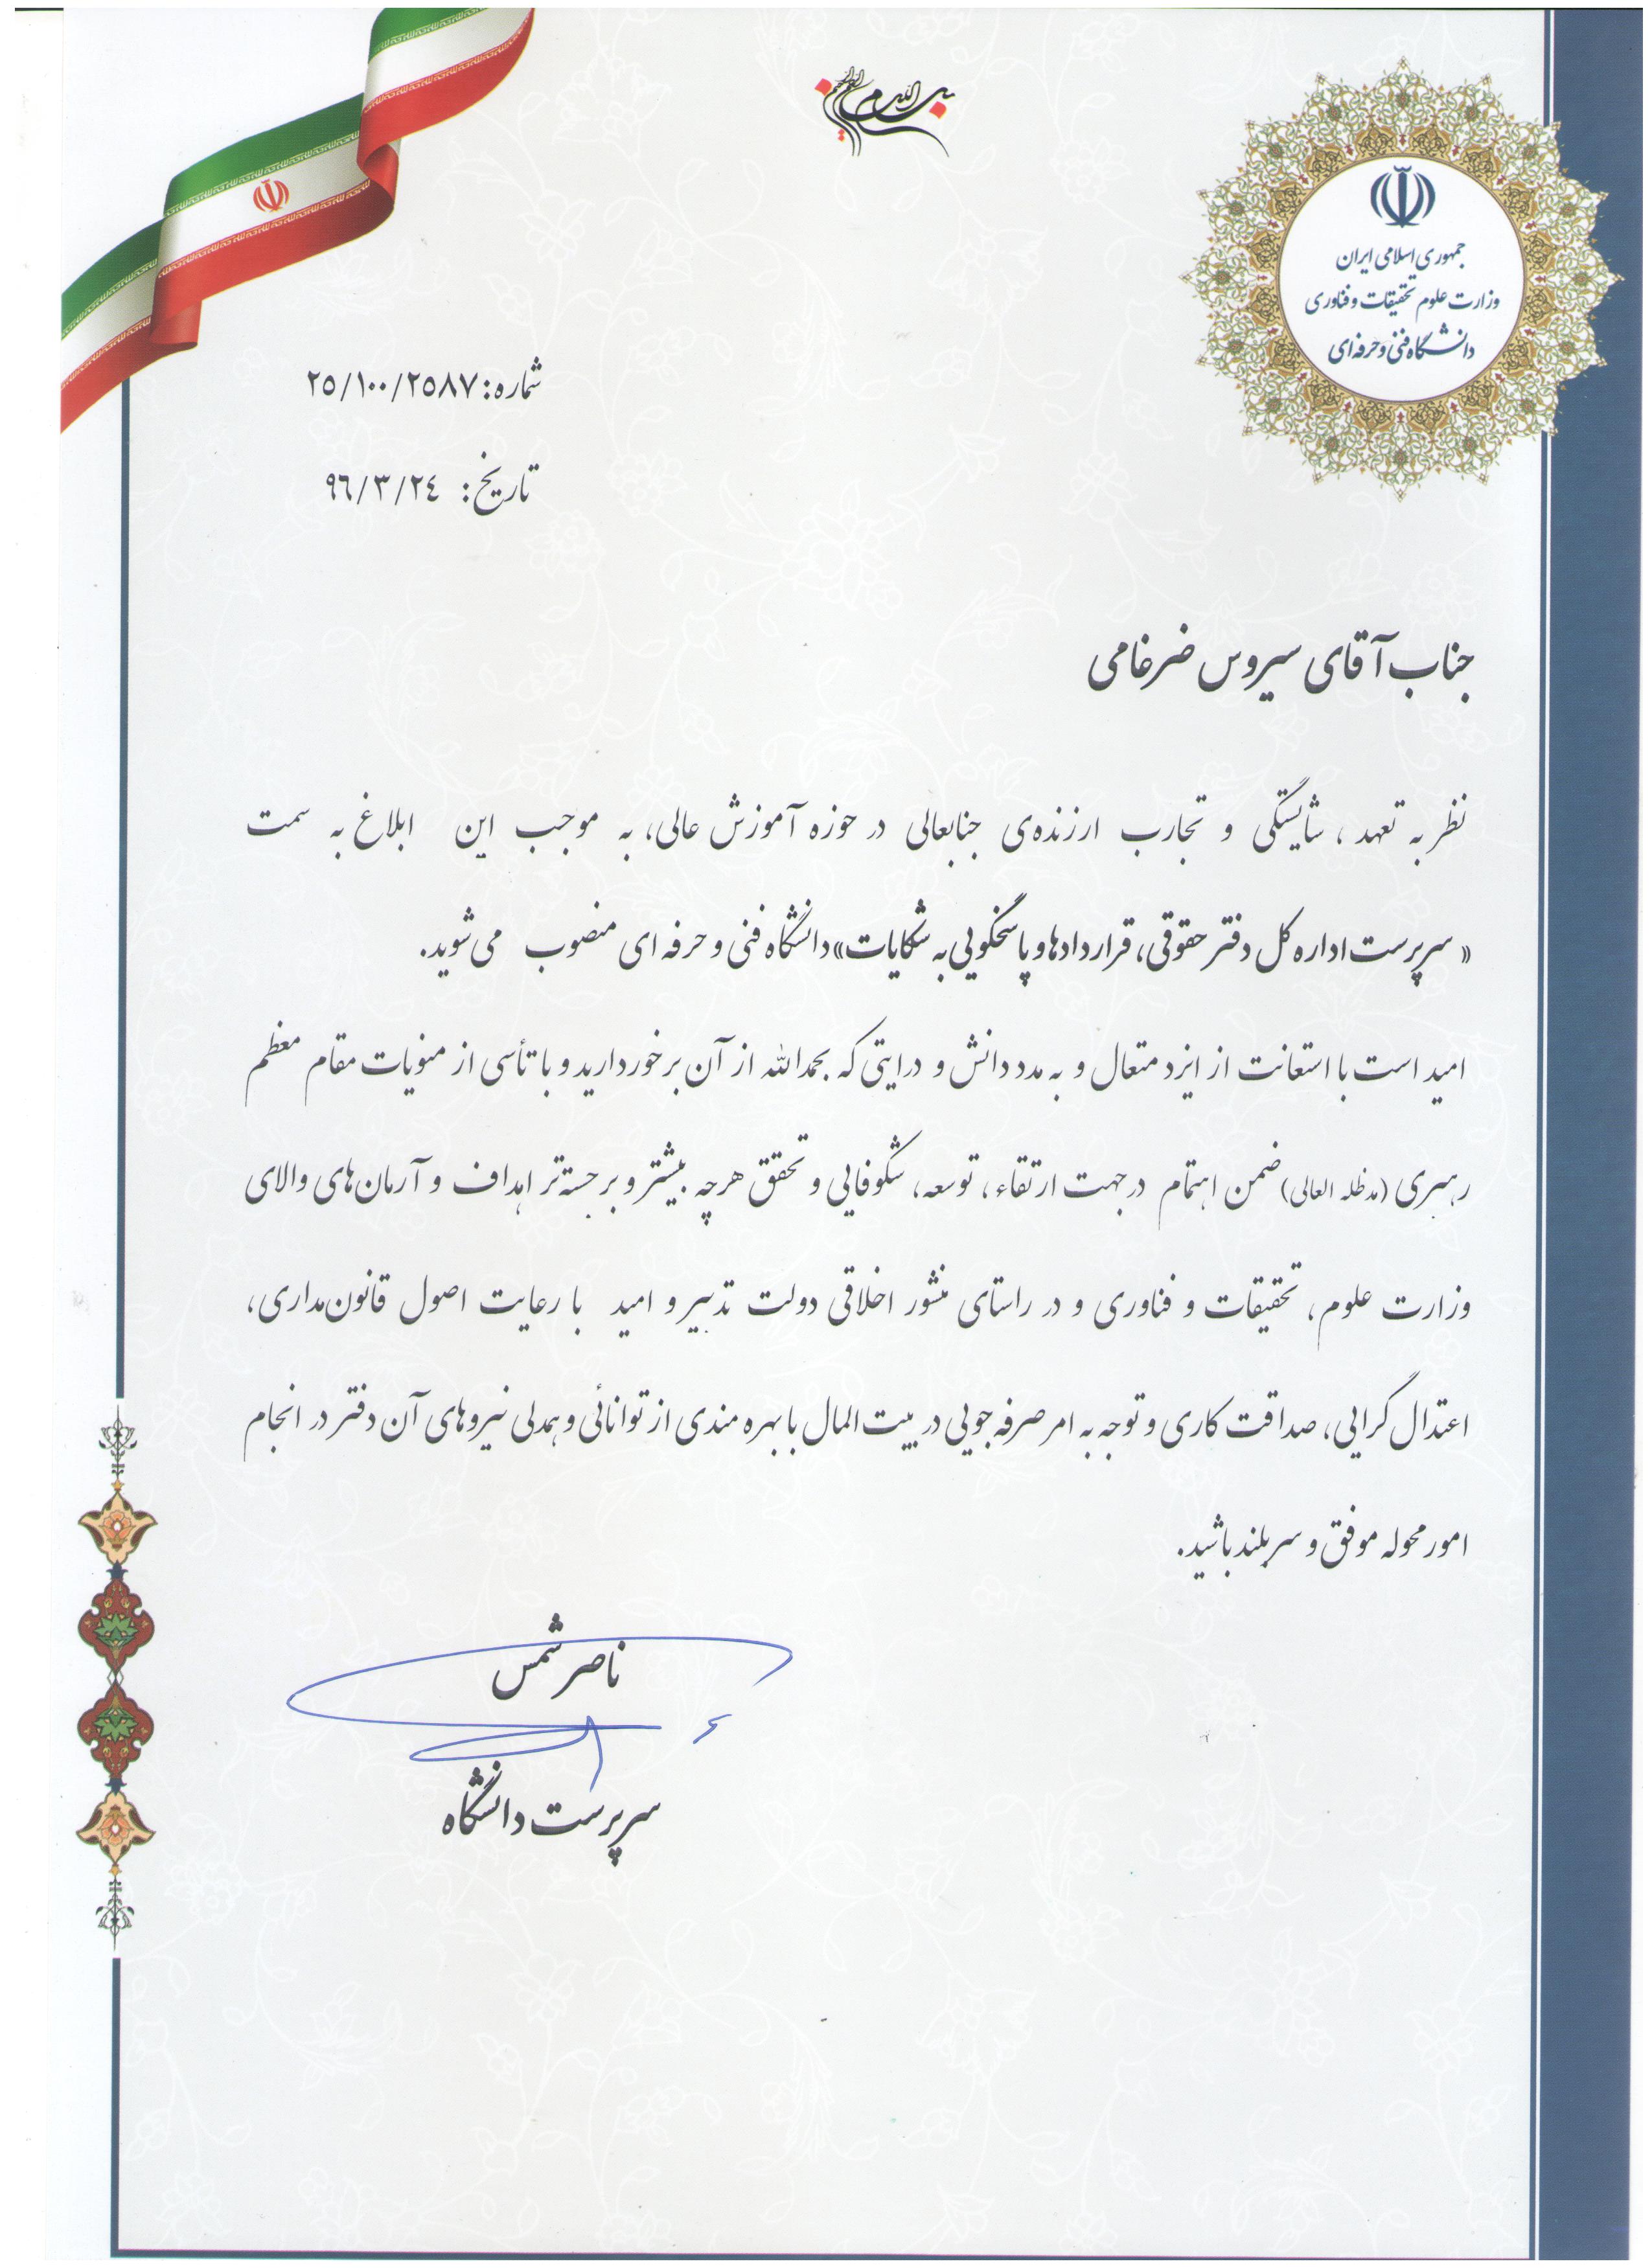 بسم الله الرحمن الرحیم
جمهوری اسلامی ایران
وزارت علوم تحقیقات و فناوری
دانشگاه فنی و حرفه‌ای
شماره: ۲۵/۱۰۰/۲۵۸۷
تاریخ: ۹۶/۳/۲۴
جناب آقای سیروس ضرغامی
نظر به تعهد ، شایستگی و تجارب ارزنده‌ی جنابعالی در حوزه آموزش عالی، به موجب این ابلاغ به سمت
« سرپرست اداره کل دفتر حقوقی، قراردادها و پاسخگویی به شکایات» دانشگاه فنی و حرفه ای منصوب می‌شوید.
امید است با استعانت از ایزد متعال و به مدد دانش و درایتی که بحمدالله از آن برخوردارید و با تأسی از منویات مقام معظم
رهبری (مدظله العالی) ضمن اهتمام در جهت ارتقاء، توسعه، شکوفایی و تحقق هرچه بیشتر و برجسته‌تر اهداف و آرمان‌های والای
وزارت علوم، تحقیقات و فناوری و در راستای منشور اخلاقی دولت تدبیر و امید با رعایت اصول قانون‌مداری،
اعتدال گرایی، صداقت کاری و توجه به امر صرفه جویی در بیت المال با بهره مندی از توانائی و همدلی نیروهای آن دفتر در انجام
امور محوله موفق و سربلند باشید.
ناصر شمس
سرپرست دانشگاه